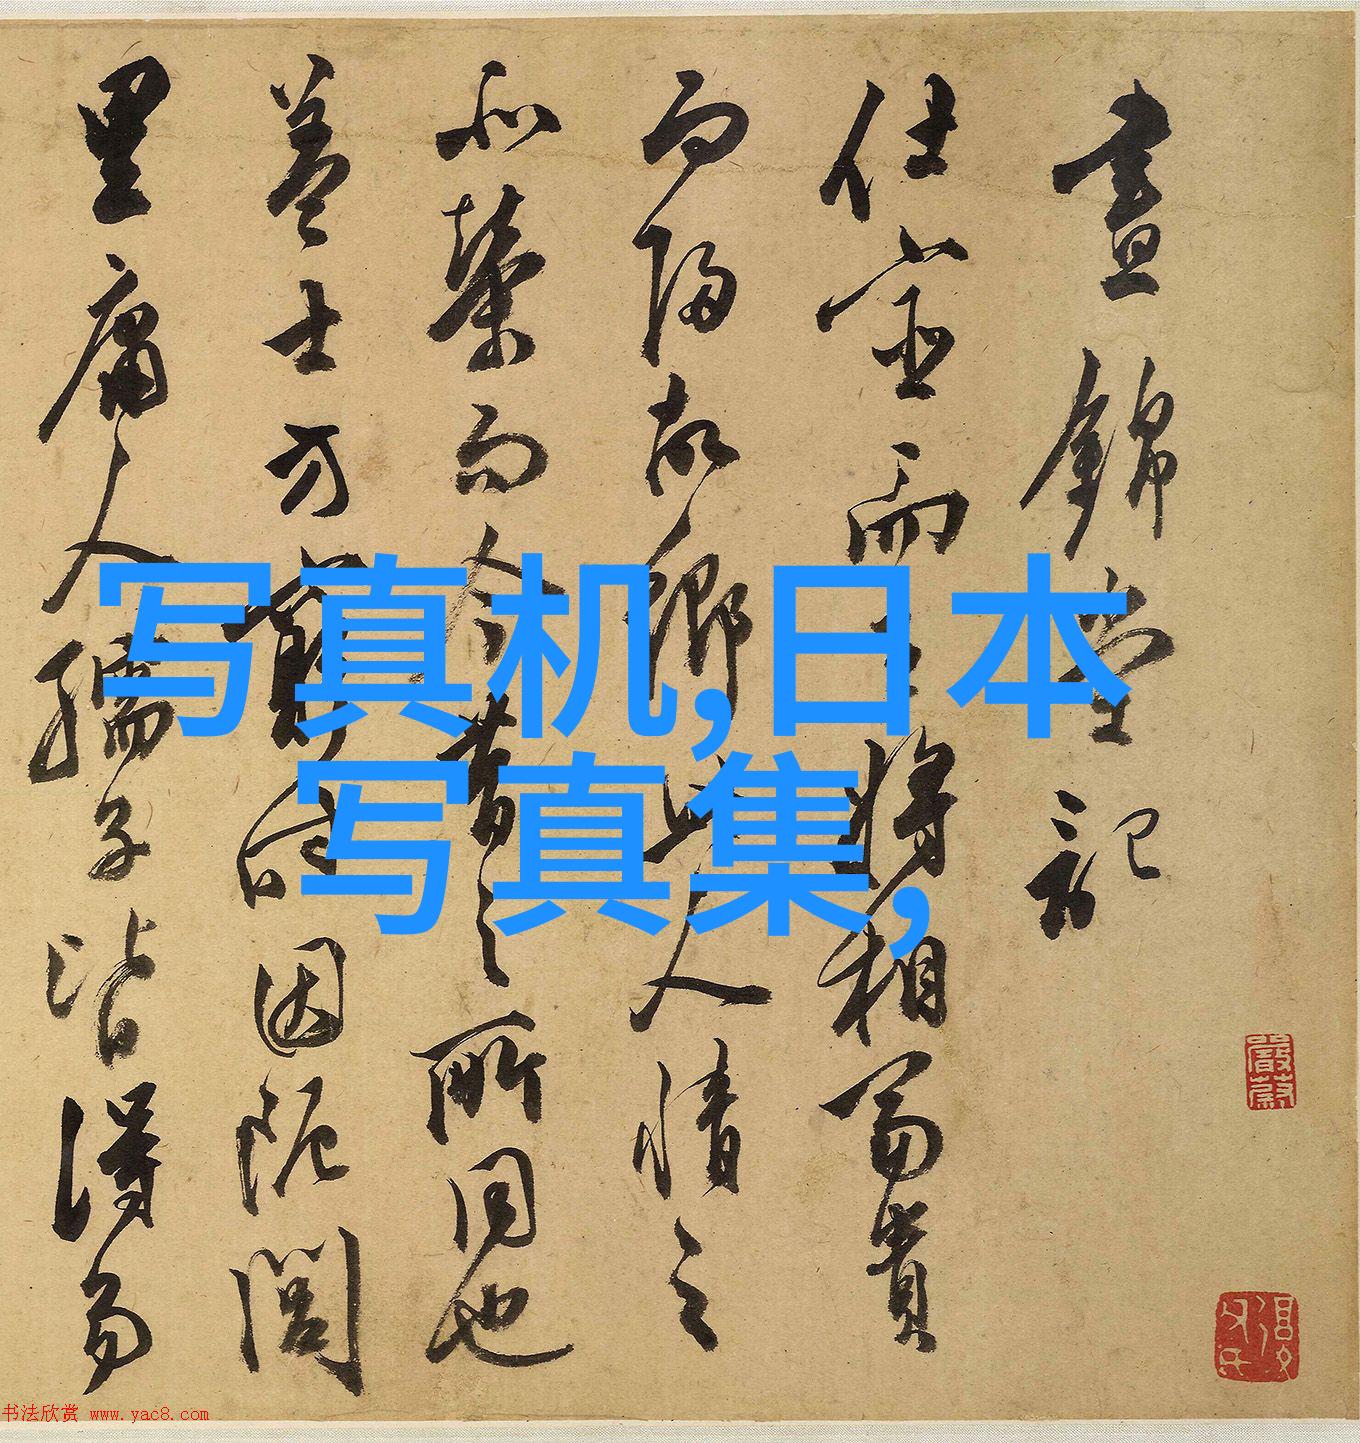 晝錦堂記
仕宦而至將相富貴
而歸故鄉此人情之
所榮而今昔之所同也
蓋士方窮時困阨閭
里庸人孺子皆得易
写真机,日本
写真集,
书法欣赏 www.yac8.com